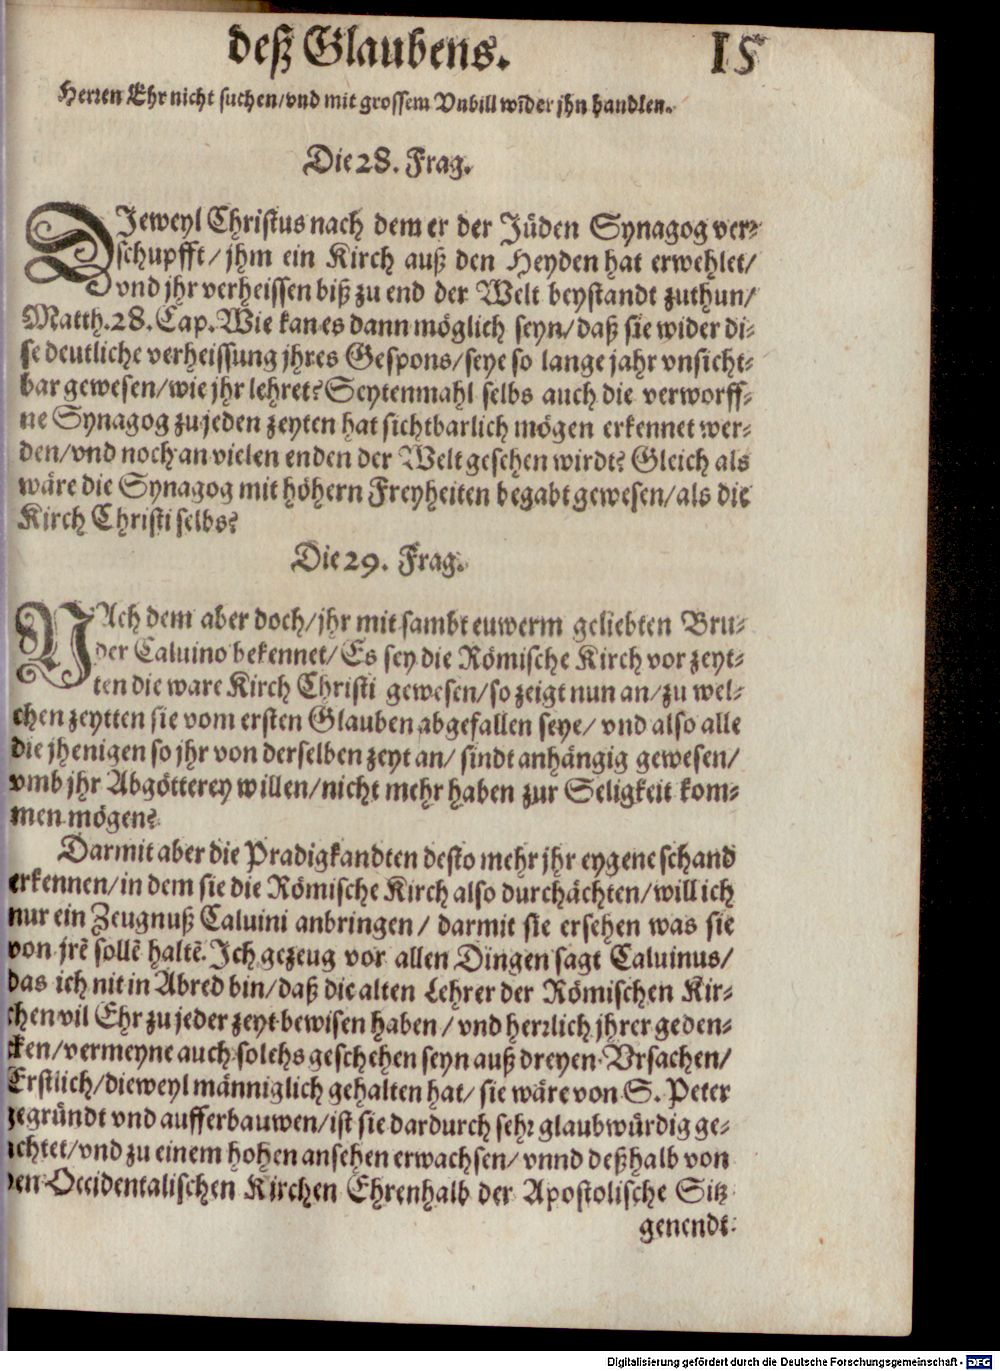 deß Glaubens. 15
Herren Ehr nicht suchen/vnd mit grossem Vnbill wider jhn handlen.
Die 28. Frag.
DJeweyl Christus nach dem er der Jüden Synagog ver-
schupfft/ jhm ein Kirch auß den Heyden hat erwehlet/
vnd jhr verheissen biß zu end der Welt beystandt zuthun/
Matth. 28. Cap. Wie kan es dann möglich seyn/ daß sie wider di-
se deutliche verheissung jhres Gespons/ seye so lange jahr vnsicht-
bar gewesen/ wie jhr lehret? Seytenmahl selbs auch die verworff-
ne Synagog zu jeden zeyten hat sichtbarlich mögen erkennet wer-
den/ vnd noch an vielen enden der Welt gesehen wirdt? Gleich als
wäre die Synagog mit höhern Freyheiten begabt gewesen/ als die
Kirch Christi selbs?
Die 29. Frag.
NAch dem aber doch/ jhr mit sambt euwerm geliebten Bru-
der Caluino bekennet/ Es sey die Römische Kirch vor zeyt-
ten die ware Kirch Christi gewesen/ so zeigt nun an/ zu wel-
chen zeytten sie vom ersten Glauben abgefallen seye/ vnd also alle
die jhenigen so jhr von derselben zeyt an/ sindt anhängig gewesen/
vmb jhr Abgötterey willen/ nicht mehr haben zur Seligkeit kom-
men mögen?
Darmit aber die Pradigkandten desto mehr jhr eygene schand
erkennen/ in dem sie die Römische Kirch also durchächten/ will ich
nur ein Zeugnuß Caluini anbringen/ darmit sie ersehen was sie
von jrẽ sollẽ haltẽ. Jch gezeug vor allen Dingen sagt Caluinus/
das ich nit in Abred bin/ daß die alten Lehrer der Römischen Kir-
chen vil Ehr zu jeder zeyt bewisen haben/ vnd herrlich jhrer geden-
cken/ vermeyne auch solehs geschehen seyn auß dreyen Vrsachen/
Erstlich/ dieweyl männiglich gehalten hat/ sie wäre von S. Peter
gegründt vnd aufferbauwen/ ist sie dardurch sehr glaubwürdig ge-
achtet/ vnd zu einem hohen ansehen erwachsen/ vnnd deßhalb von
den Occidentalischen Kirchen Ehrenhalb der Apostolische Sitz
genendt.
Digitalisierung gefördert durch die Deutsche Forschungsgemeinschaft - DFG